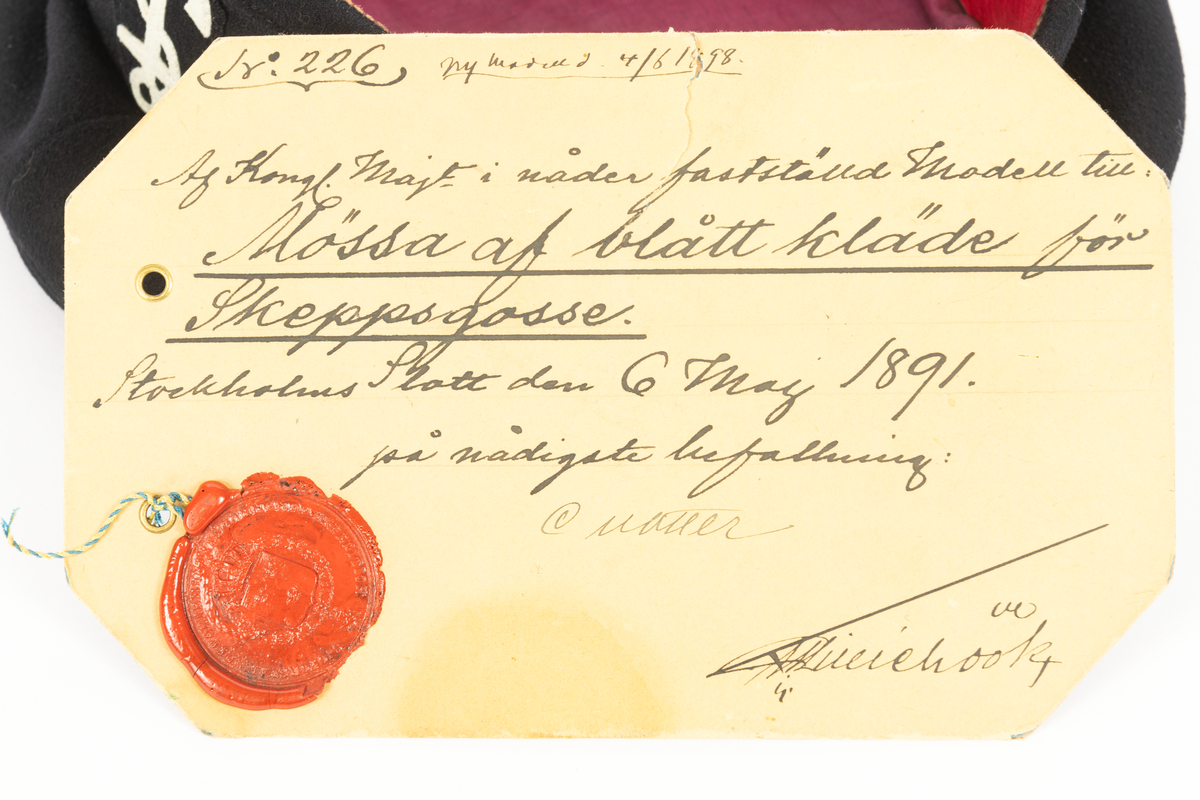 No. 226 ny modell d. 4/6 1898.
Af Kongl. Majt i nåder fastställd Modell till:
Mössa af blått kläde för
Skeppsgosse.
Stockholms Slott den 6 Maj 1891.
på nådigste befallning: